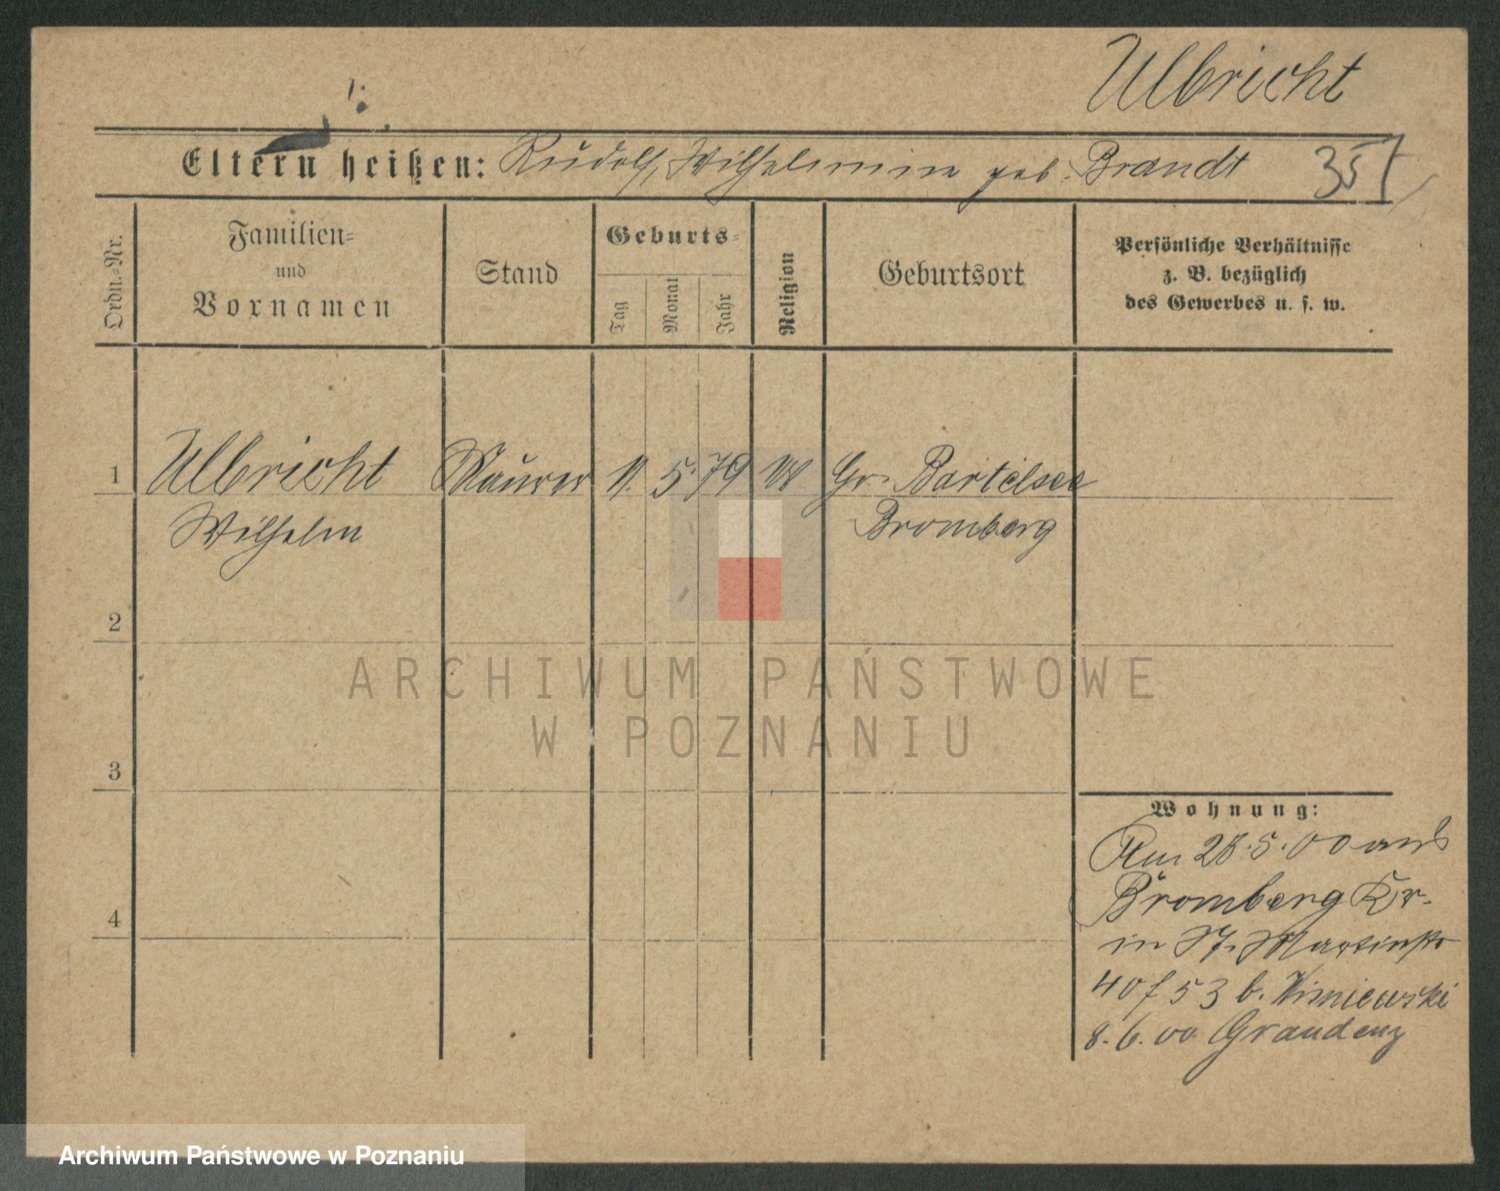 Ulbricht
Eltern heißen: Rudolf, Wilhelmine geb. Brandt
Ordn.-Nr.
Familien-
und
Vornamen
Stand
Geburts-
Tag
Monat
Jahr
Religion
Geburtsort
Persönliche Verhältnisse
z. B. bezüglich
des Gewerbes u. s. w.
1 Ulbricht Maurer 11. 5. 79 Gr. Bartelsee
Wilhelm Bromberg
2
3
4
Wohnung:
Am 28.5.00 aus
Bromberg Kr.
in St. Martinstr
40 53 b. Wisniewski
8.6.00 Graudenz
ARCHIWUM PAŃSTWOWE
W POZNANIU
Archiwum Państwowe w Poznaniu